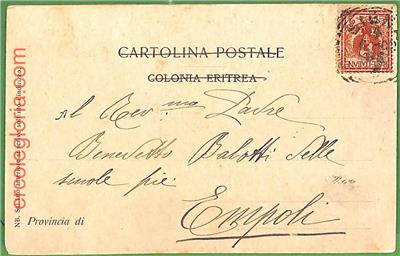 CARTOLINA POSTALE
COLONIA ERITREA
Al Rev mo Padre
Benedetto Balotti delle
scuole pie
Empoli
Provincia di
ercolegloria.com